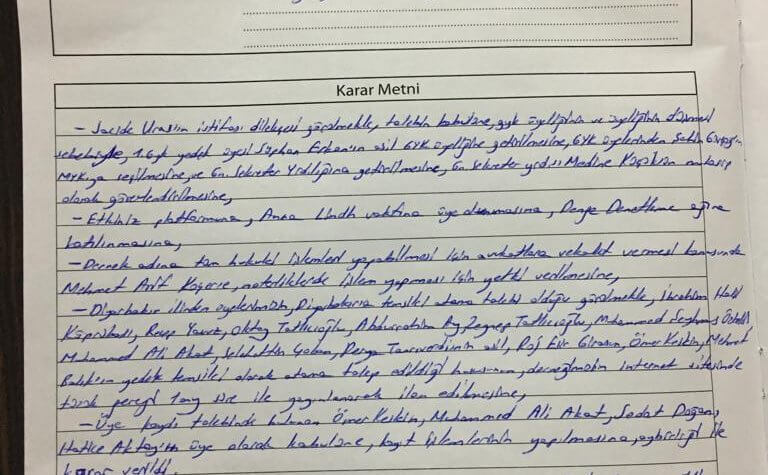 Karar Metni
- Sacide Uras'ın istifası dilekçesi görülmekle, talebin kabulüne, gyk üyeliğinin ve üyeliğinin düşmesi
sebebiyle, 1. Gyk yedek üyesi Erkan'ın asil GYK üyeliğine getirilmesine, GYK üyelerinden
MYK'ya seçilmesine, ve Gn. Sekreter Yrd.lığına getirilmesine, Gn. Sekreter yrd.sı Medine
olarak görevlendirilmesine,
- Etkiniz platformuna, Anna Lindh vakfına üye olunmasına, Denge Denetleme ağına
katılınmasına,
- Dernek adına tüm hukuki işlemleri yapabilmesi için avukatlara vekalet vermesi konusunda
Mehmet Arif Koçer'e, noterliklerde işlem yapması için yetki verilmesine,
- Diyarbakır ilinden üyelerimizin, Diyarbakıra temsilci atama talebi olduğu görülmekle, İbrahim Halil
Köprübaşı, Recep Yavuz, Oktay Tatlıcıoğlu, Abdurrahim Ay, Zeynep Tatlıcıoğlu, Muhammed Seyhmus
Muhammed Ali Akat, Selahattin Çoban, Derya Tanrıverdi'nin asil, Roj Eser Girasun, Ömer Keskin, Mehmet
yedek temsilci olarak atama talep edildiği hususunun, derneğimizin internet sitesinde
tüzük gereği 1 ay süre ile yayınlanarak ilan edilmesine,
- Üye kaydı talebinde bulunan Ömer Keskin, Muhammed Ali Akat, Sedat Doğan,
Hatice Aktay'ın üye olarak kabulüne, kayıt işlemlerinin yapılmasına, oybirliği ile
karar verildi.